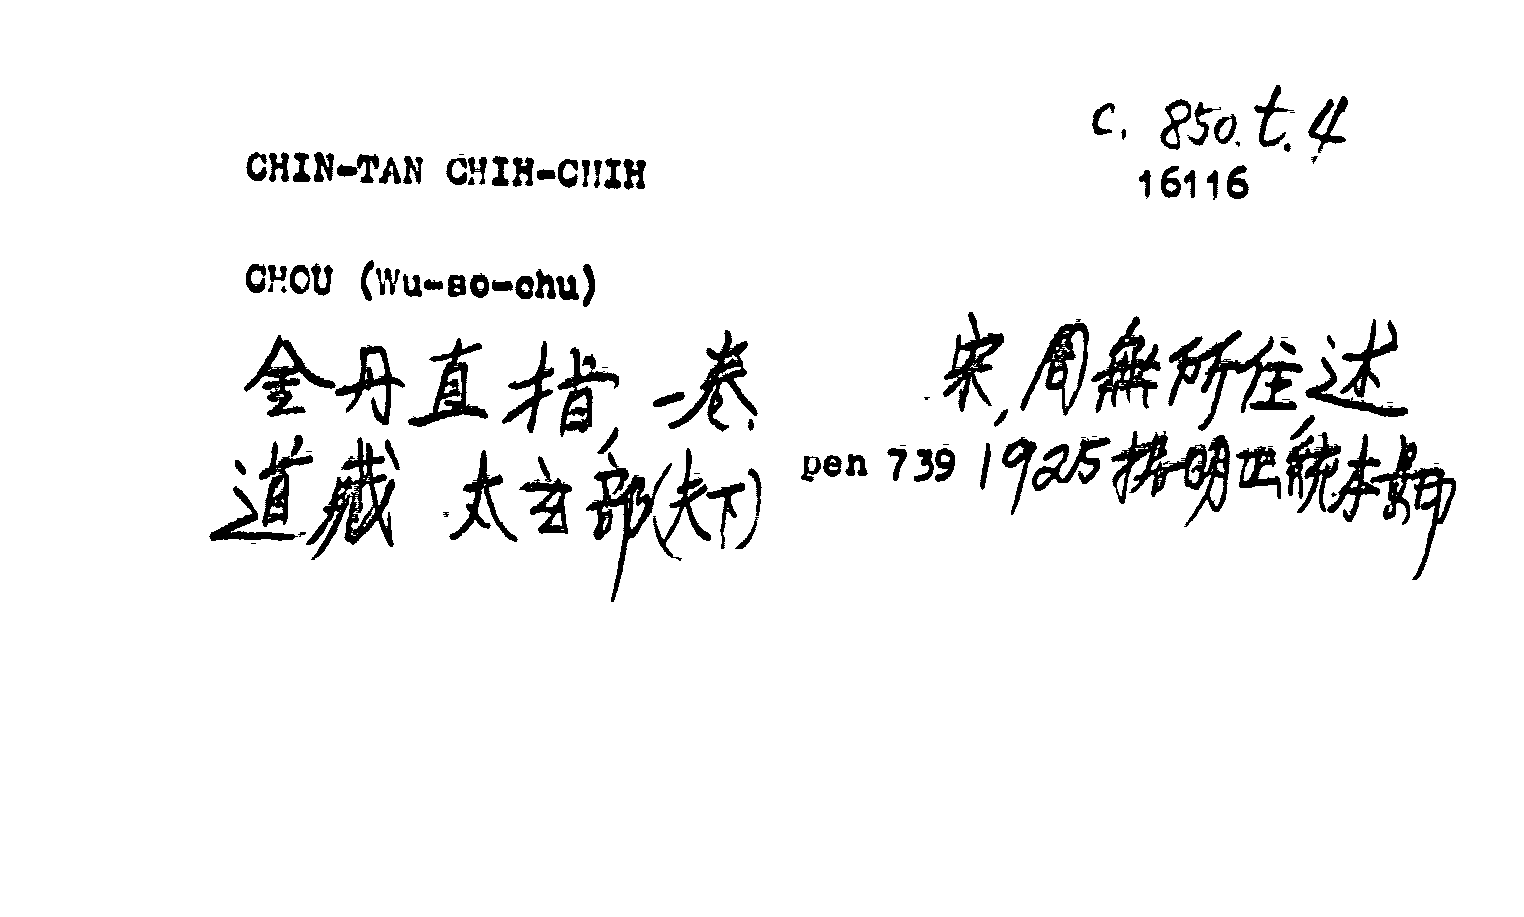 c. 850. t. 4
16116
CHIN-TAN CHIH-CHIH
CHOU (Wu-so-chu)
金丹直指, 一卷. 宋, 周無所住述
道藏 太玄部(夫下) pen 739 1925 据明正統本影印